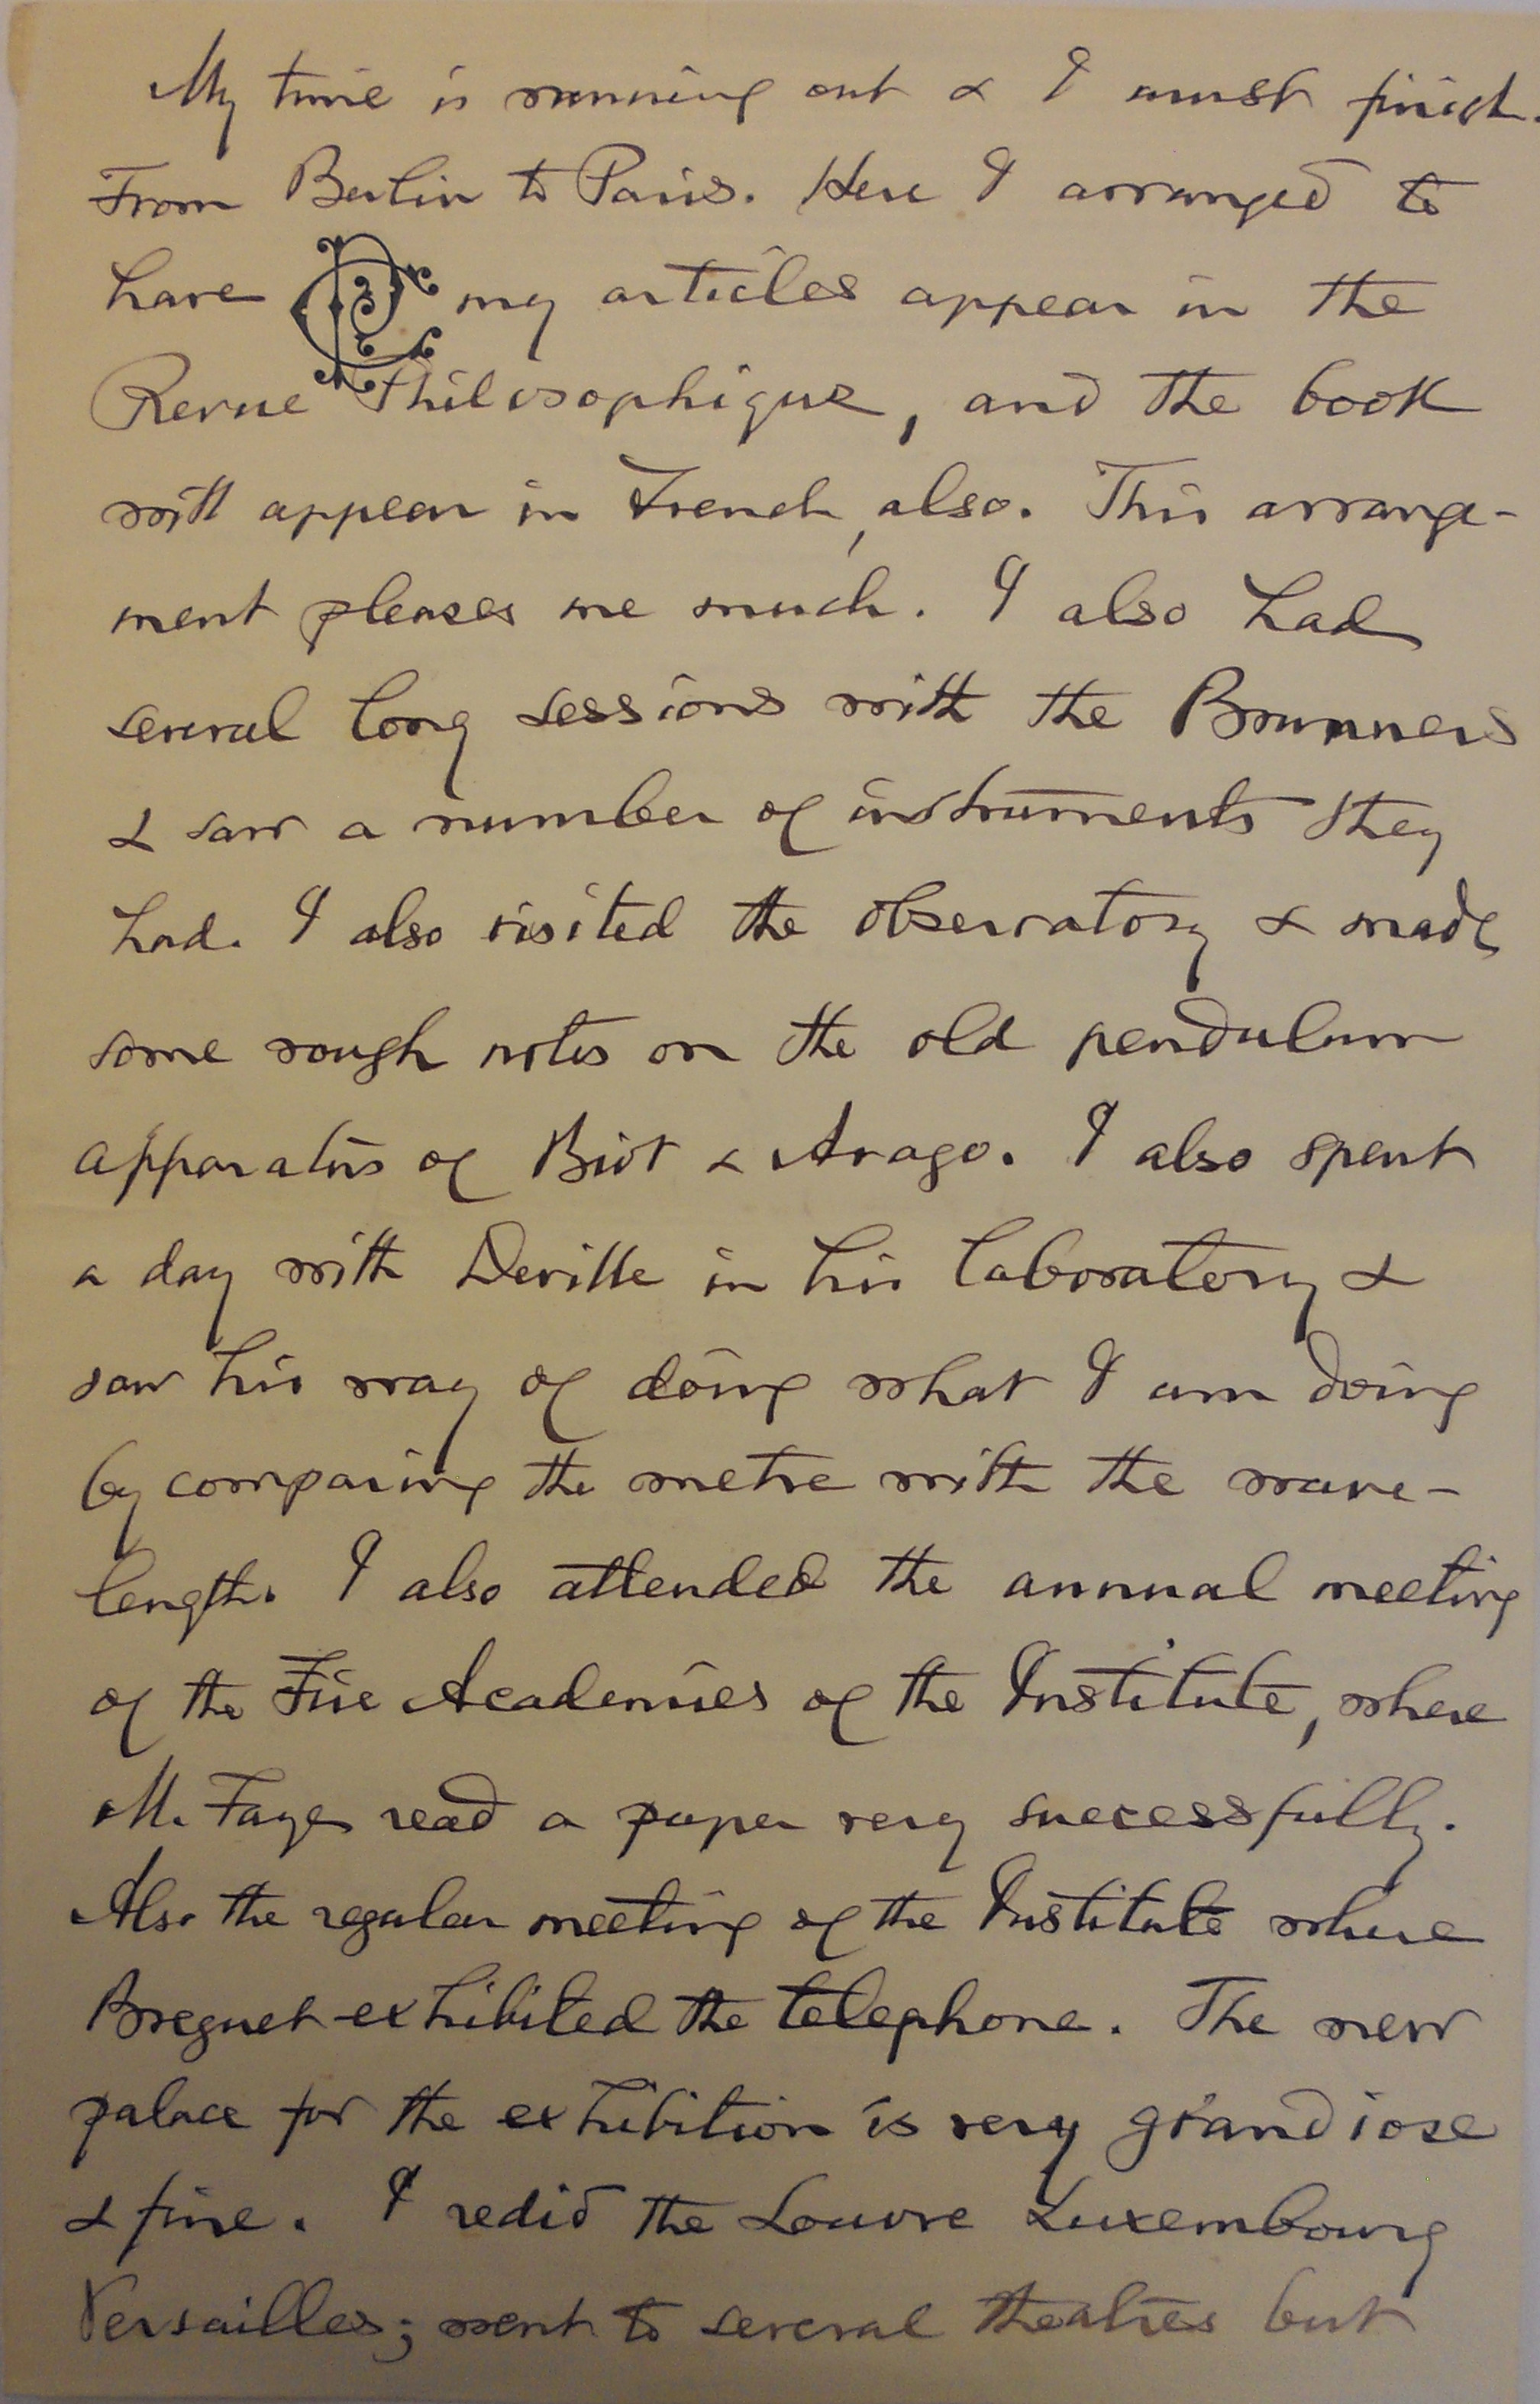 My time is running out & I must finish.
From Berlin to Paris. Here I arranged to
have my articles appear in the
Revue Philosophique, and the book
will appear in French, also. This arrange-
ment pleases me much. I also had
several long sessions with the Brunners
& saw a number of instruments they
had. I also visited the observatory & made
some rough notes on the old pendulum
apparatus of Biot & Arago. I also spent
a day with Deville in his laboratory &
saw his way of doing what I am doing
by comparing the metre with the wave-
length. I also attended the annual meeting
of the Five Academies of the Institute, where
M. Faye read a paper very successfully.
Also the regular meeting of the Institute where
Breguet exhibited the telephone. The new
palace for the exhibition is very grandiose
& fine. I redid the Louvre Luxembourg
Versailles; went to several theatres but